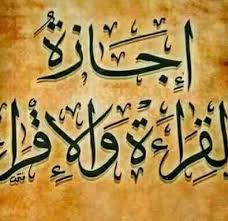 إجازة
القراءة والإقراء